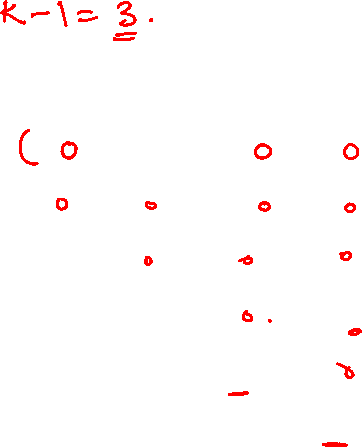 K-1=3.
( 0 0 0
0 0 0 0
0 0 0
0. 0
0
-
-